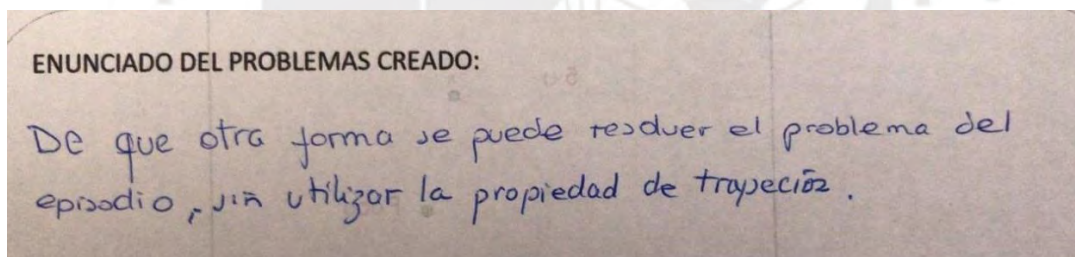 ENUNCIADO DEL PROBLEMAS CREADO:
De que otra forma se puede resolver el problema del
episodio, sin utilizar la propiedad de trapecios.